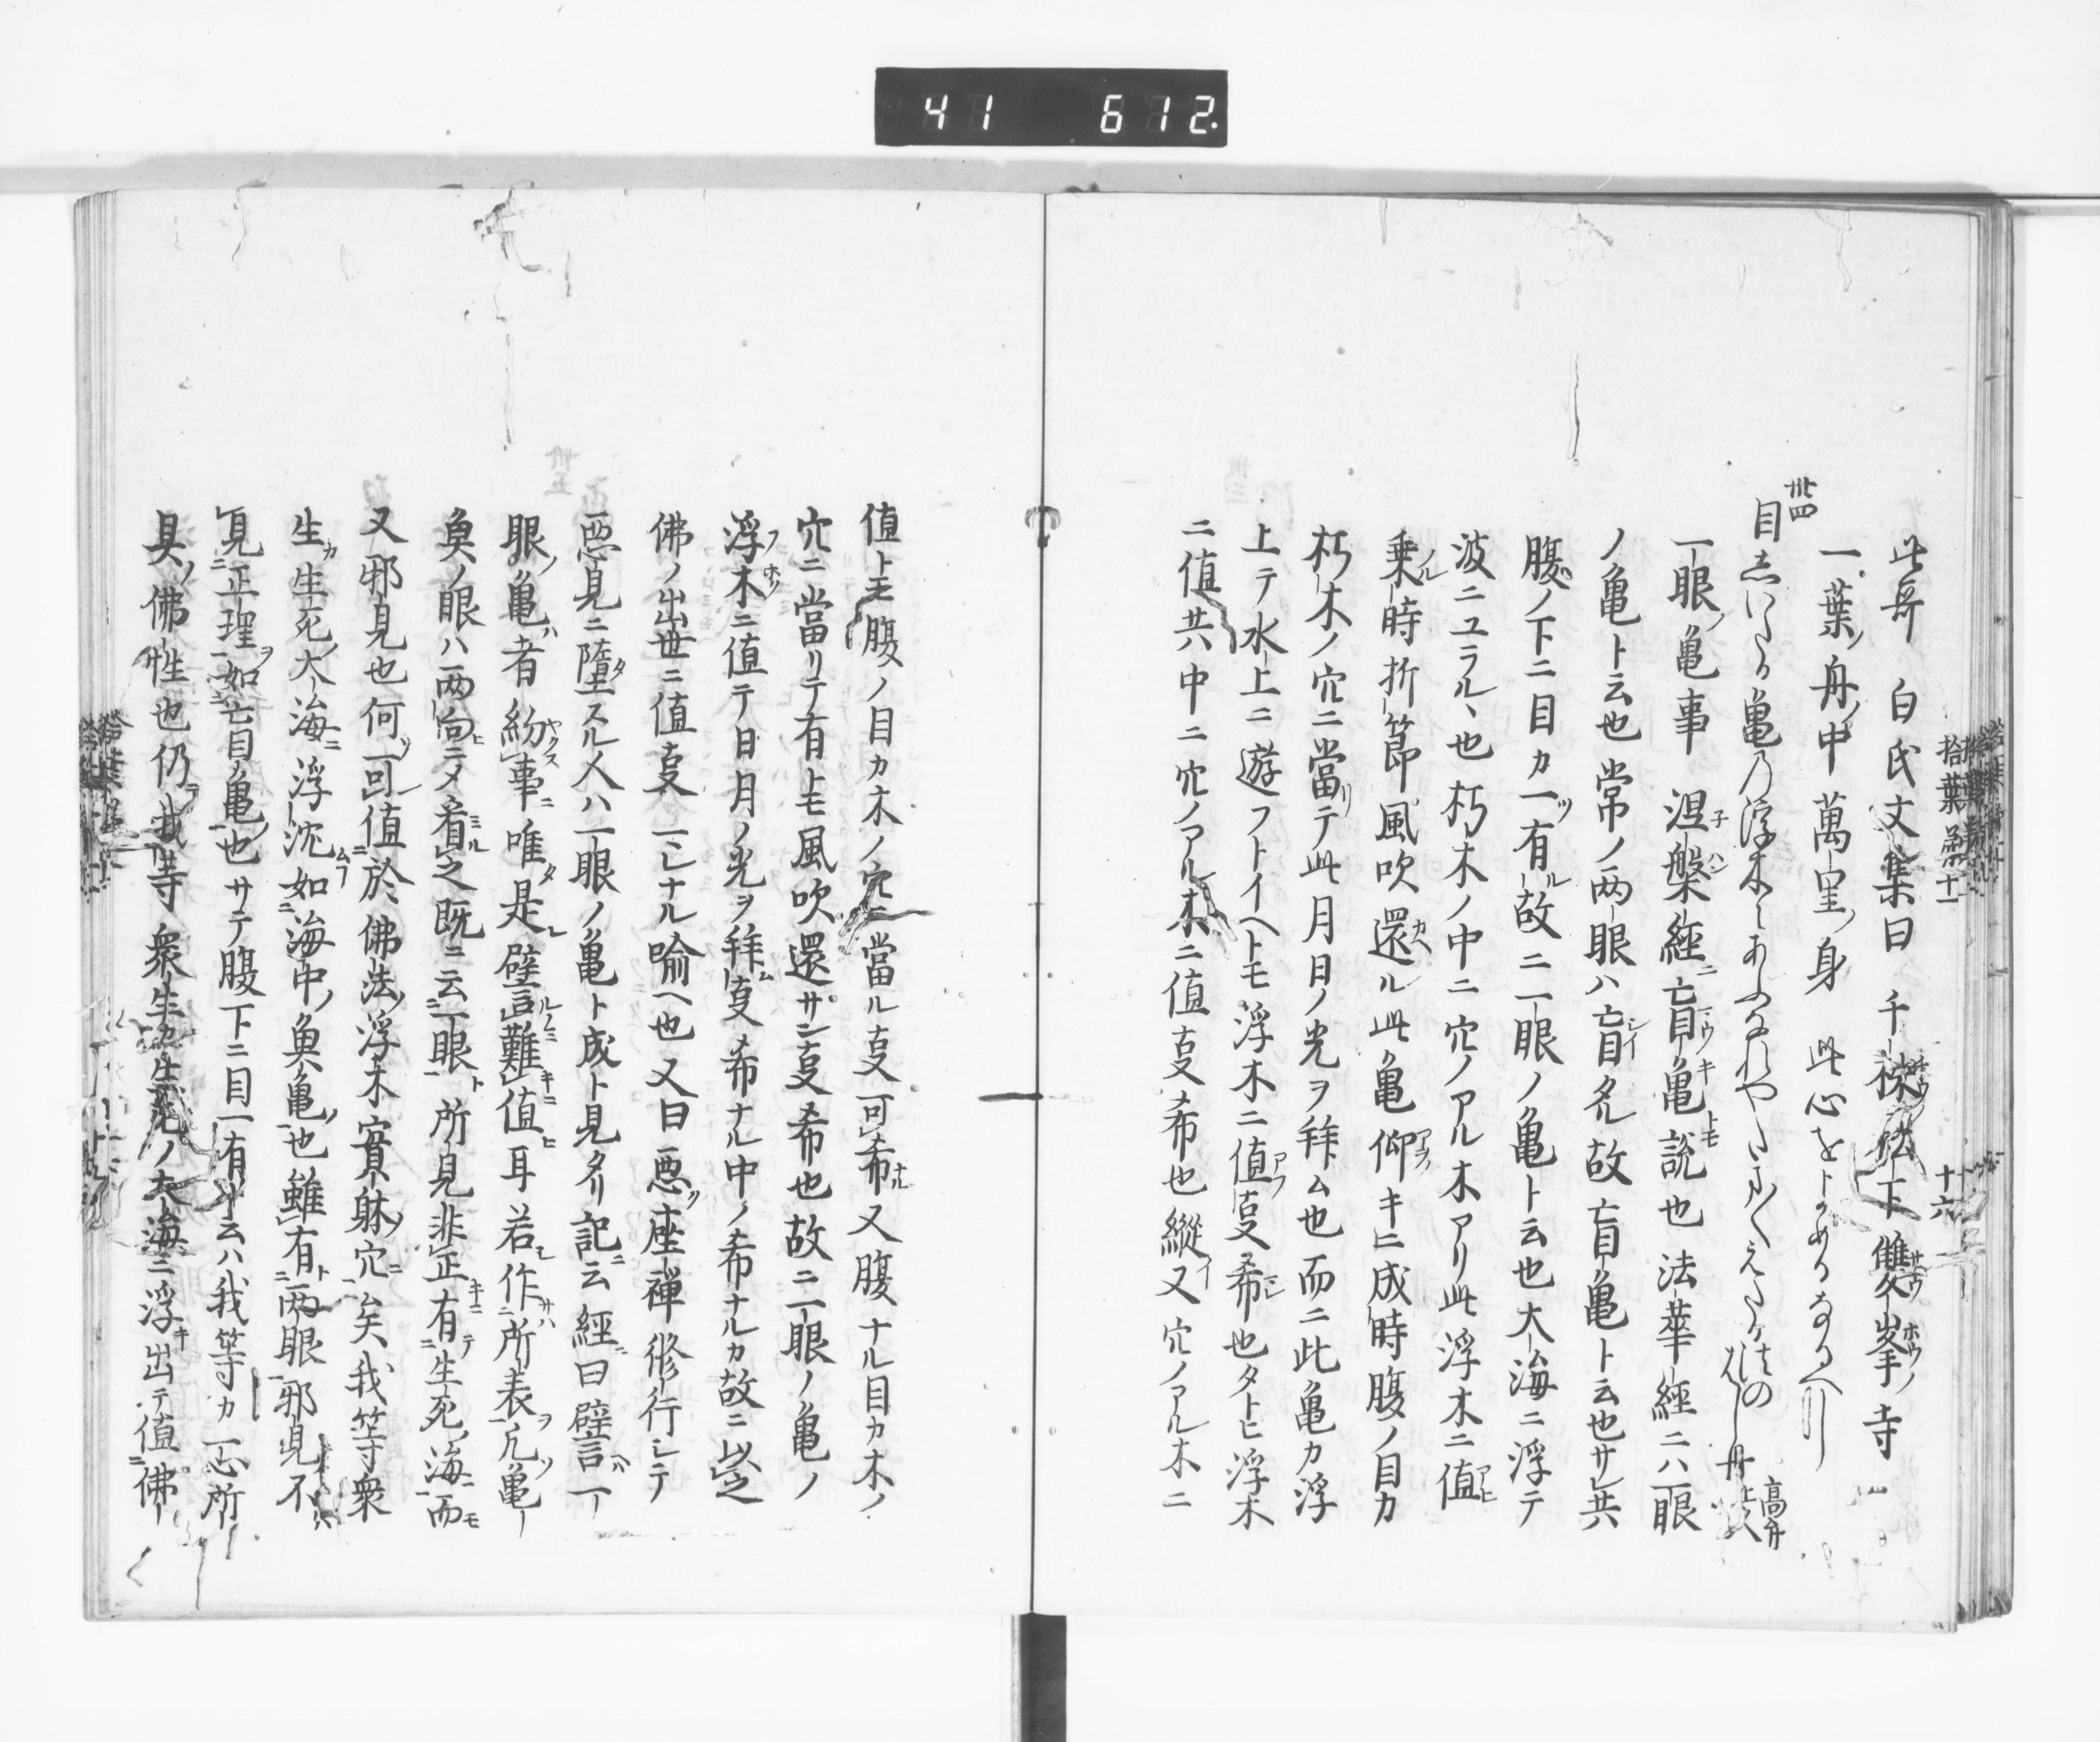 41 612
拾葉第十一 十六
此哥 白氏文集曰 千株松下雙峯寺
一葉ノ舟ノ中萬里ノ身 此心をよめるなるへし
卅四
目しゐたる亀の浮木にあふなれやたま〱えたる法の
高舟
一眼ノ亀事 涅槃經ニ盲亀トモ説也 法華經ニハ一眼
ノ亀ト云也常ノ两眼ハ盲タル故盲亀ト云也サレ共
腹ノ下ニ目カ一ツ有ル故ニ一眼ノ亀ト云也大海ニ浮テ
波ニユラルヽ也朽木ノ中ニ穴ノアル木アリ此浮木ニ値ヒ
乗ル時折節風吹還ル此亀仰キニ成時腹ノ目カ
朽木ノ穴ニ當リテ此月日ノ光ヲ拜ム也而ニ此亀カ浮
上テ水上ニ遊フトイヘトモ浮木ニ値フ叓希也タトヒ浮木
ニ値共中ニ穴ノアル木ニ値叓希也縱イ又穴ノアル木ニ
値トモ腹ノ目カ木ノ穴ニ當ル叓可希ナル又腹ナル目カ木ノ
穴ニ當リテ有トモ風吹還サン叓希也故ニ一眼ノ亀ノ
浮木ニ値テ日月ノ光ヲ拜ム叓希ナル中ノ希ナルカ故ニ以之
佛ノ出世ニ値叓一シナル喩ヘ也又曰悪ク座禪修行シテ
悪見ニ墮スル人ハ一眼ノ亀ト成ト見タリ記ニ云經曰譬ハ一
眼ノ亀ハ者紛事ニ唯是レ譬難キニ値ヒ耳若シ作サハ所表ヲ凡ソ亀
魚ノ眼ハ两向ヒニメ看ル之既ニ云一眼ト所見非正キニ有テ生死ノ海ニ而モ
又邪見也何ソ可値於佛法ノ浮木實躰ノ穴ニ矣我等衆
生カ生死ノ大海ニ浮沈ムフ如海中ノ魚亀ノ也雖有ト两眼邪見不
見正理ヲ如亡目ノ亀ノ也サテ腹下ニ目一有ト云ハ我等カ一心所
具ノ佛性也仍テ我等衆生カ生死ノ大海ニ浮キ出テ値佛